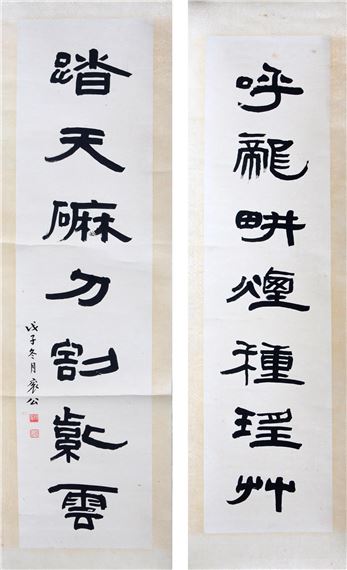 呼龍畊煙種瑶艸
踏天磨刀割紫雲
戊子冬月褎公